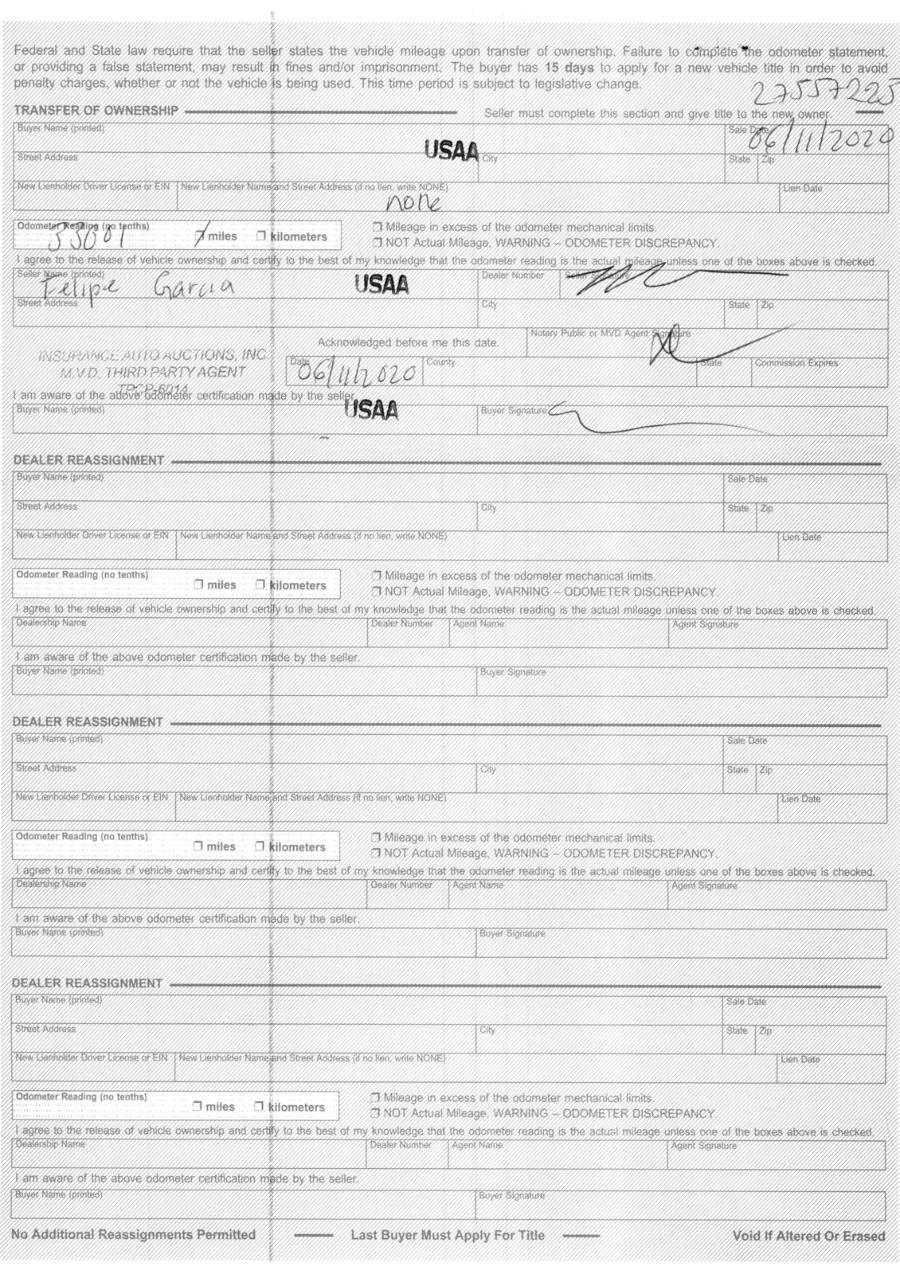 Federal and State law require that the seller states the vehicle mileage upon transfer of ownership. Failure to complete the odometer statement,
or providing a false statement, may result in fines and/or imprisonment. The buyer has 15 days to apply for a new vehicle title in order to avoid
penalty charges, whether or not the vehicle is being used. This time period is subject to legislative change.
27557225
TRANSFER OF OWNERSHIP Seller must complete this section and give title to the new owner.
Buyer Name (printed) USAA Sale Date 06/11/2020
Street Address City State Zip
New Lienholder Driver License or EIN New Lienholder Name and Street Address (if no lien, write NONE) Lien Date
none
Odometer Reading (no tenths) miles kilometers
Mileage in excess of the odometer mechanical limits.
NOT Actual Mileage, WARNING – ODOMETER DISCREPANCY.
I agree to the release of vehicle ownership and certify to the best of my knowledge that the odometer reading is the actual mileage unless one of the boxes above is checked.
Seller Name (printed) Dealer Number Seller Signature
Felipe Garcia USAA
Street Address City State Zip
Acknowledged before me this date. Notary Public or MVD Agent Signature
INSURANCE AUTO AUCTIONS, INC.
M.V.D. THIRD PARTY AGENT
TPCP-6014
Date 06/11/2020 County State Commission Expires
I am aware of the above odometer certification made by the seller.
Buyer Name (printed) USAA Buyer Signature
DEALER REASSIGNMENT
Buyer Name (printed) Sale Date
Street Address City State Zip
New Lienholder Driver License or EIN New Lienholder Name and Street Address (if no lien, write NONE) Lien Date
Odometer Reading (no tenths) miles kilometers
Mileage in excess of the odometer mechanical limits.
NOT Actual Mileage, WARNING – ODOMETER DISCREPANCY.
I agree to the release of vehicle ownership and certify to the best of my knowledge that the odometer reading is the actual mileage unless one of the boxes above is checked.
Dealership Name Dealer Number Agent Name Agent Signature
I am aware of the above odometer certification made by the seller.
Buyer Name (printed) Buyer Signature
DEALER REASSIGNMENT
Buyer Name (printed) Sale Date
Street Address City State Zip
New Lienholder Driver License or EIN New Lienholder Name and Street Address (if no lien, write NONE) Lien Date
Odometer Reading (no tenths) miles kilometers
Mileage in excess of the odometer mechanical limits.
NOT Actual Mileage, WARNING – ODOMETER DISCREPANCY.
I agree to the release of vehicle ownership and certify to the best of my knowledge that the odometer reading is the actual mileage unless one of the boxes above is checked.
Dealership Name Dealer Number Agent Name Agent Signature
I am aware of the above odometer certification made by the seller.
Buyer Name (printed) Buyer Signature
DEALER REASSIGNMENT
Buyer Name (printed) Sale Date
Street Address City State Zip
New Lienholder Driver License or EIN New Lienholder Name and Street Address (if no lien, write NONE) Lien Date
Odometer Reading (no tenths) miles kilometers
Mileage in excess of the odometer mechanical limits.
NOT Actual Mileage, WARNING – ODOMETER DISCREPANCY.
I agree to the release of vehicle ownership and certify to the best of my knowledge that the odometer reading is the actual mileage unless one of the boxes above is checked.
Dealership Name Dealer Number Agent Name Agent Signature
I am aware of the above odometer certification made by the seller.
Buyer Name (printed) Buyer Signature
No Additional Reassignments Permitted Last Buyer Must Apply For Title Void If Altered Or Erased